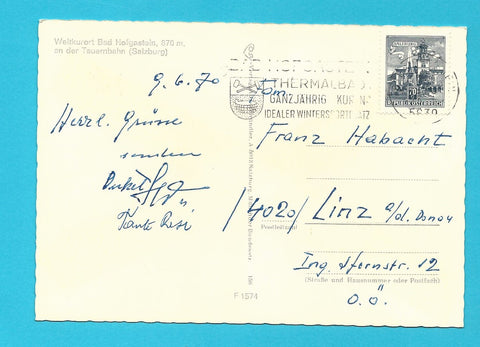 Weltkurort Bad Hofgastein, 870 m,
an der Tauernbahn (Salzburg)
9. 6. 70
Herzl. Grüsse
senden
Onkel
Tante Resi
BAD HOFGASTEIN
THERMALBAD
GANZJÄHRIG KUR
IDEALER WINTERSPORTPLATZ
5630
SALZBURG
70
REPUBLIK ÖSTERREICH
Franz Habacht
/4020/ Linz a/d. Donau
Postleitzahl
Ing. Sternstr. 12
(Straße und Hausnummer oder Postfach)
O.Ö.
F 1574